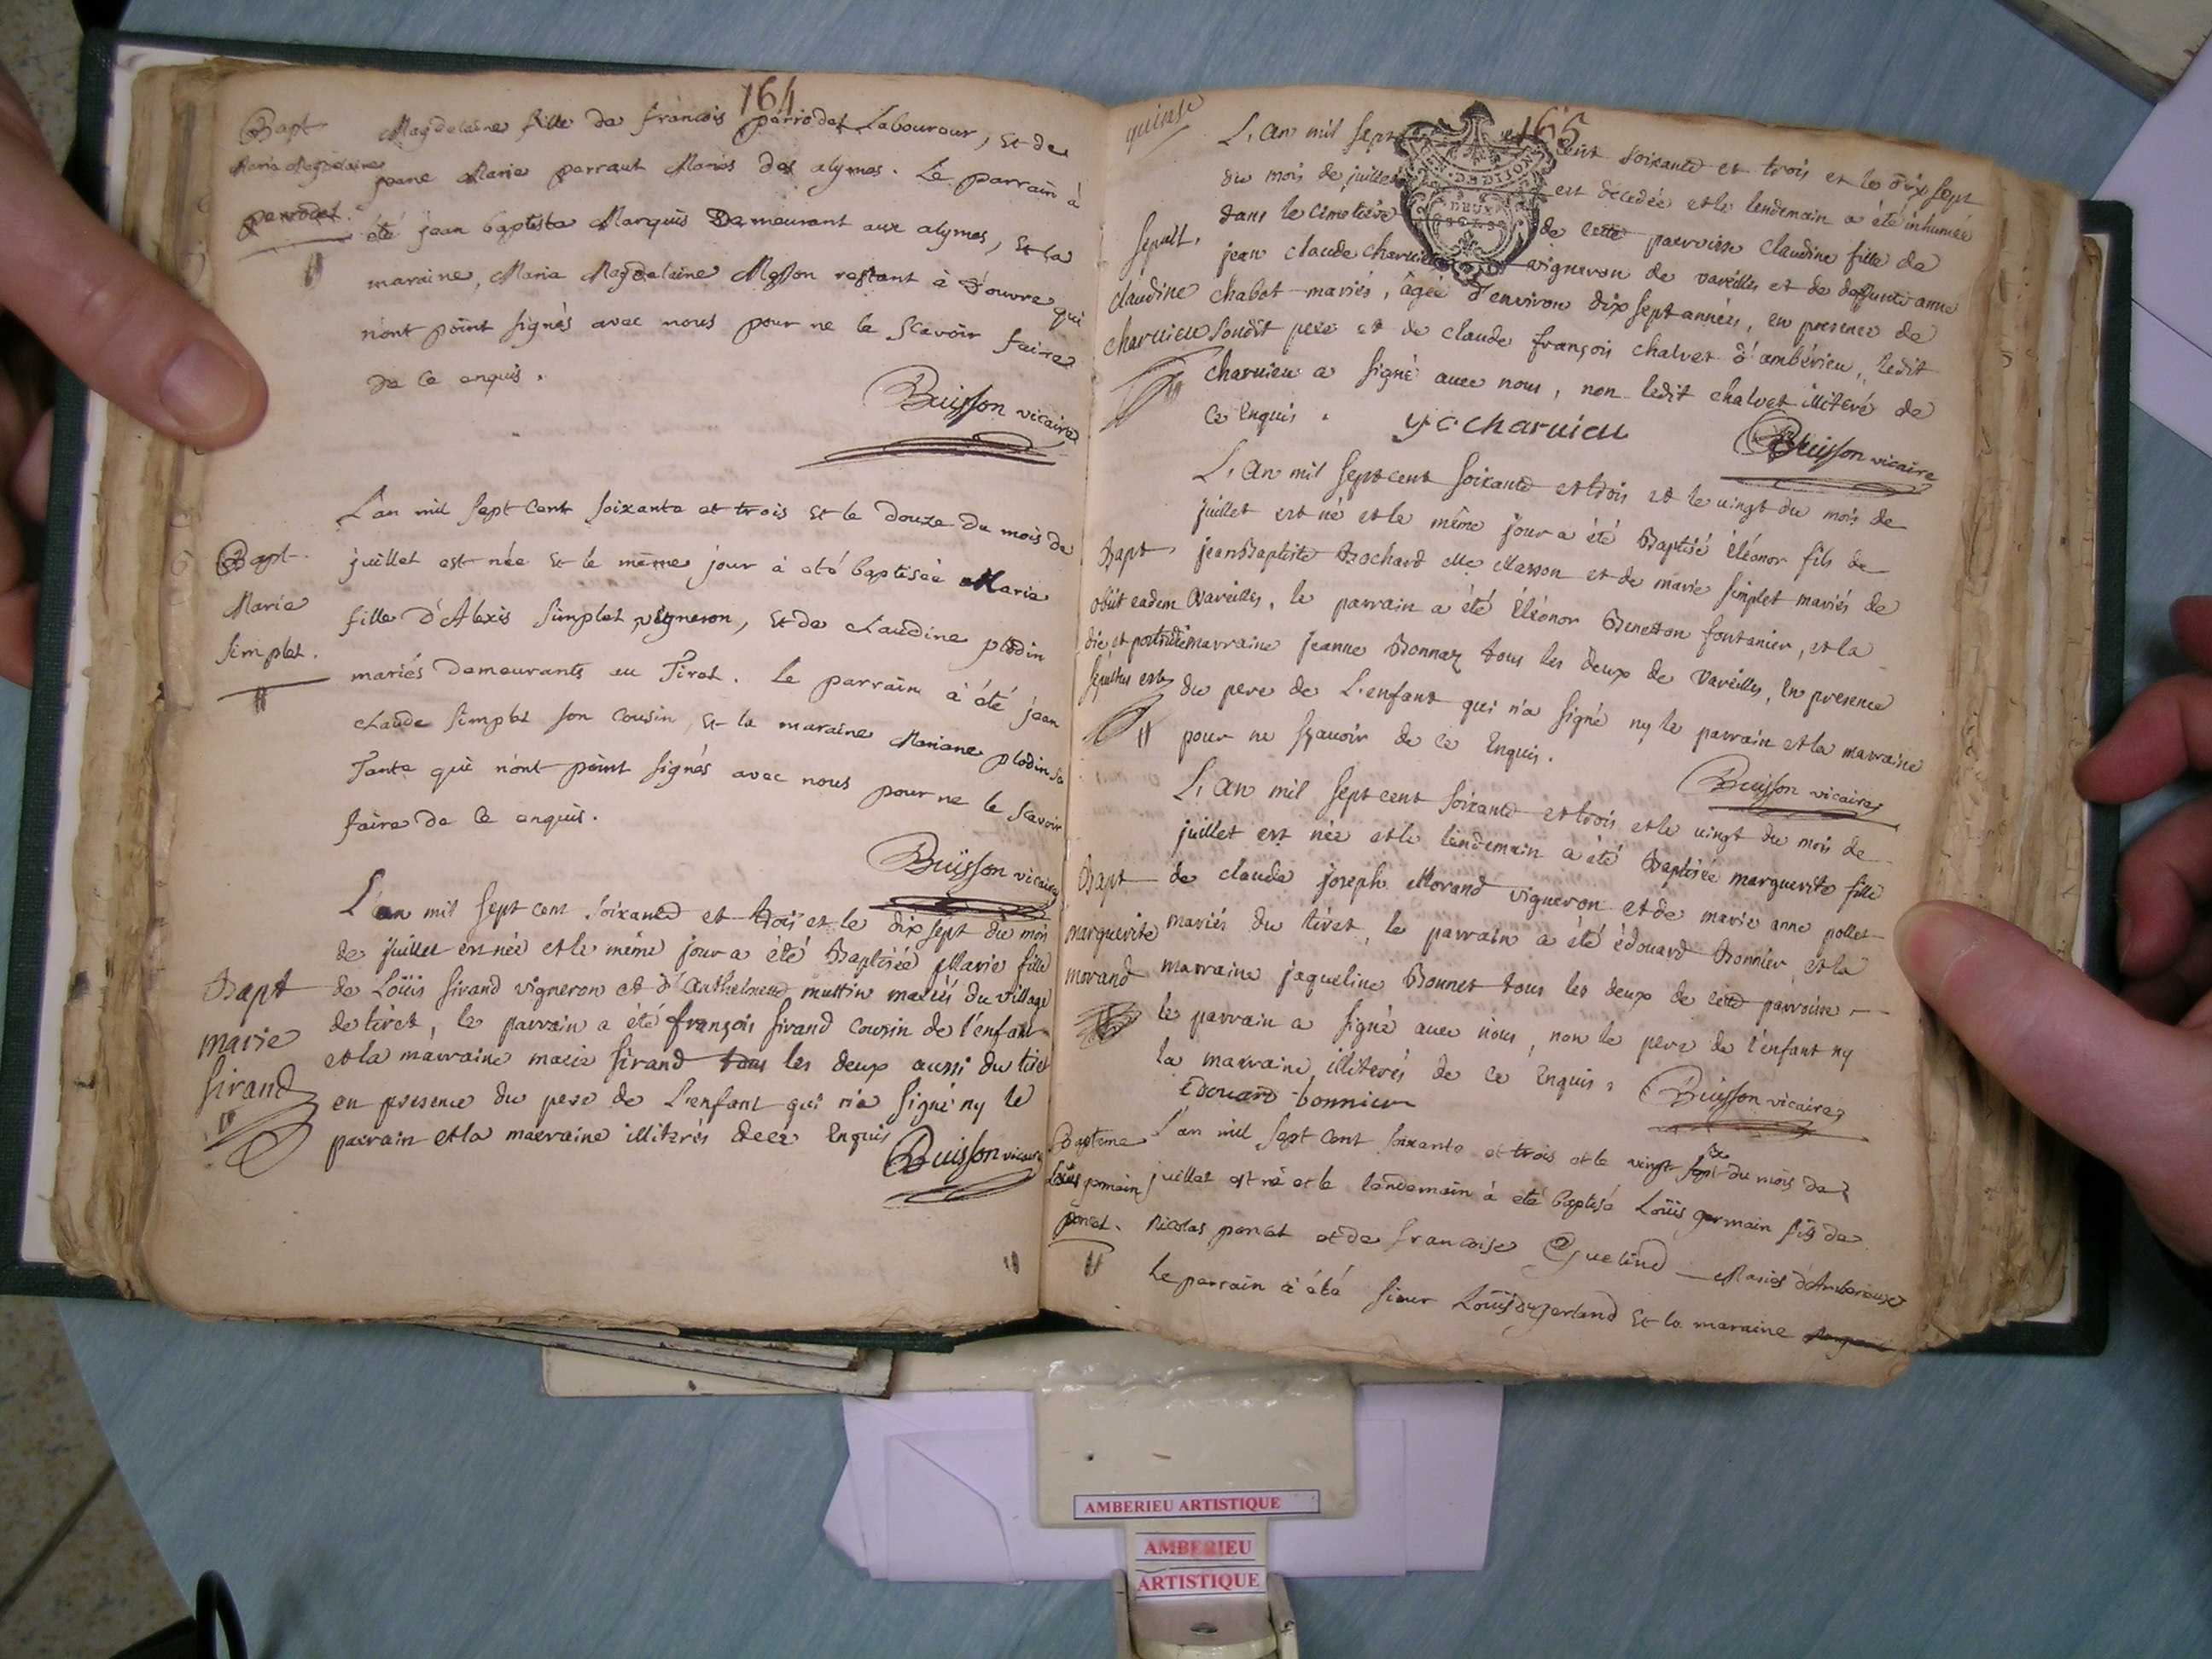 164
Bapt
Marie Magdelaine
perrodet.
Magdelaine fille de francois perrodet Laboureur, et de
jeane Marie perraut Mariés des alymes. Le parrain à
été jean baptiste Marquis Demeurant aux alymes, et la
maraine, Marie Magdelaine restant à Douvre qui
n'ont point signés avec nous pour ne le scavoir faire
de ce enquis.
Buisson vicaire
Bapt.
Marie
simplet.
L'an mil sept cent soixante et trois et le douze du mois de
juillet est née et le même jour à eté baptisée Marie
fille d'Alexis simplet vigneron, et de claudine plodin
mariés demeurants au Tiret. Le parrain à été jean
claude simplet son cousin, et la maraine Mariane plodin sa
Tante qui n'ont point signés avec nous pour ne le scavoir
faire de ce enquis.
Buisson vicaire
Bapt
marie
sirand
L'an mil sept cent soixante et trois et le dix sept du mois
de juillet est née et le même jour a été Baptisée Marie fille
de Loüis sirand vigneron et d'anthelmette muttin mariés du village
de tiret, le parrain a été françois sirand cousin de l'enfant
et la marraine marie sirand tous les deux aussi du tiret
en presence du pere de L'enfant qui n'a signé ny le
parrain et la marraine illiterés de ce Enquis
Buisson vicaire
quinse
165
sepult.
claudine
charvieu
L'an mil sept cent soixante et trois et le dix sept
du mois de juillet est decedée et le lendemain a été inhumée
dans le cimetiere de cette parroisse claudine fille de
jean claude charvieu vigneron de vareilles et de deffunte anne
chabot mariés, âgée d'environ dix sept années, en presence de
sondit pere et de claude françois chalvet d'ambérieu, ledit
charvieu a signé avec nous, non ledit chalvet illiteré de
ce Enquis.
j c charvieu
Buisson vicaire
Bapt
obiit eadem
die et postridie
sepultus est
L'an mil sept cent soixante et trois et le vingt du mois de
juillet est né et le même jour a été Baptisé Eléonor fils de
jean Baptiste Bochard Me Masson et de marie simplet mariés de
Vareilles, le parrain a été Eléonor Benetton fontanier, et la
marraine jeanne Bonnaz tous les deux de Vareilles, en presence
du pere de L'enfant qui n'a signé ny le parrain et la marraine
pour ne sçavoir de ce Enquis.
Buisson vicaire
Bapt
marguerite
morand
L'an mil sept cent soixante et trois et le vingt du mois de
juillet est née et le lendemain a été Baptisée marguerite fille
de claude joseph Morand vigneron et de marie anne pollet
mariés du tiret, le parrain a été édouard Bonnier et la
marraine jaqueline Bonnet tous les deux de cette parroisse
le parrain a signé avec nous, non le pere de l'enfant ny
la marraine, illiterés de ce Enquis.
Edouard bonnier
Buisson vicaire
Baptême
Loüis germain
poncet.
L'an mil sept cent soixante et trois et le vingt sept du mois de
juillet est né et le lendemain à eté baptisé Loüis germain fils de
Nicolas poncet et de francoise Mariés d'Amberieux
Le parrain à été sieur Loüis et la maraine
AMBERIEU ARTISTIQUE
AMBERIEU
ARTISTIQUE